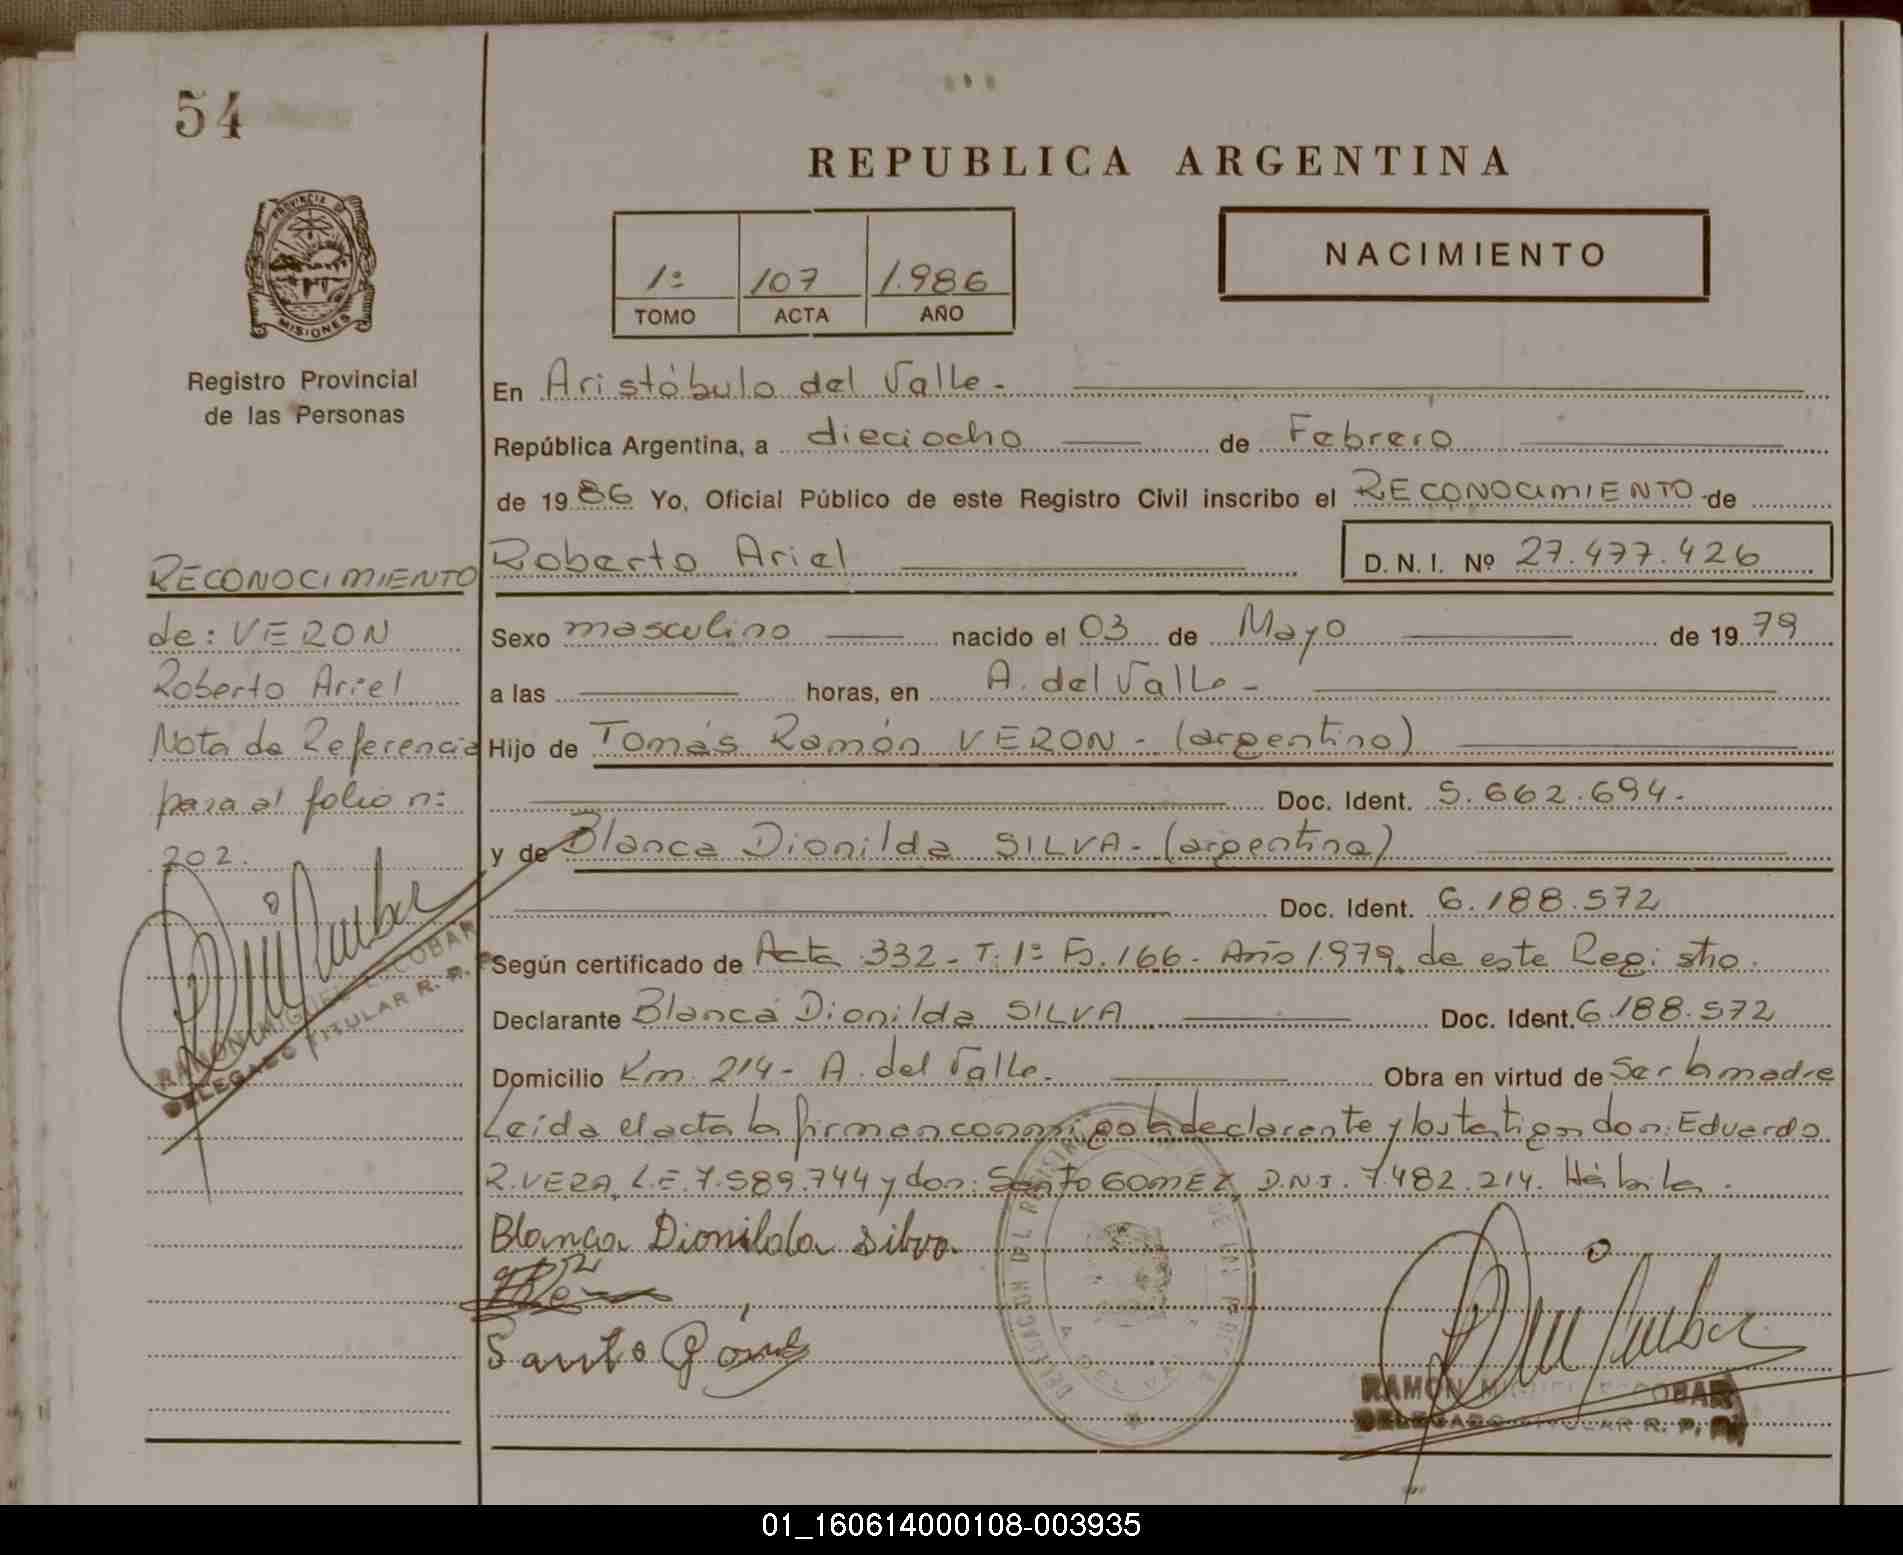 54
REPUBLICA ARGENTINA
PROVINCIA DE
MISIONES
Registro Provincial
de las Personas
1º 107 1.986
TOMO ACTA AÑO
NACIMIENTO
En Aristóbulo del Valle.
República Argentina, a dieciocho de Febrero
de 1986 Yo, Oficial Público de este Registro Civil inscribo el RECONOCIMIENTO de
Roberto Ariel D. N. I. Nº 27.477.426
Sexo masculino nacido el 03 de Mayo de 1979
a las horas, en A. del Valle -
Hijo de Tomás Ramón VERON - (argentino)
Doc. Ident. 5.662.694.
y de Blanca Dionilda SILVA - (argentina)
Doc. Ident. 6.188.572
Según certificado de Acta 332 - T. 1º Fo. 166 - Año 1.979, de este Registro.
Declarante Blanca Dionilda SILVA Doc. Ident. 6.188.572
Domicilio Km. 214 - A. del Valle. Obra en virtud de Ser la madre
Leída el acta la firman conmigo la declarante y los testigos don: Eduardo
R. VERA, L.E. 7.589.744 y don: Santo GOMEZ, D.N.I. 7.482.214. Hábiles.
Blanca Dionilda Silva
Santo Gómez
RAMON MIGUEL ESCOBAR
DELEGADO TITULAR R. P. P.
RECONOCIMIENTO
de: VERON
Roberto Ariel
Nota de Referencia
para al folio nº
202.
RAMON MIGUEL ESCOBAR
DELEGADO TITULAR R. P. P.
01_160614000108-003935